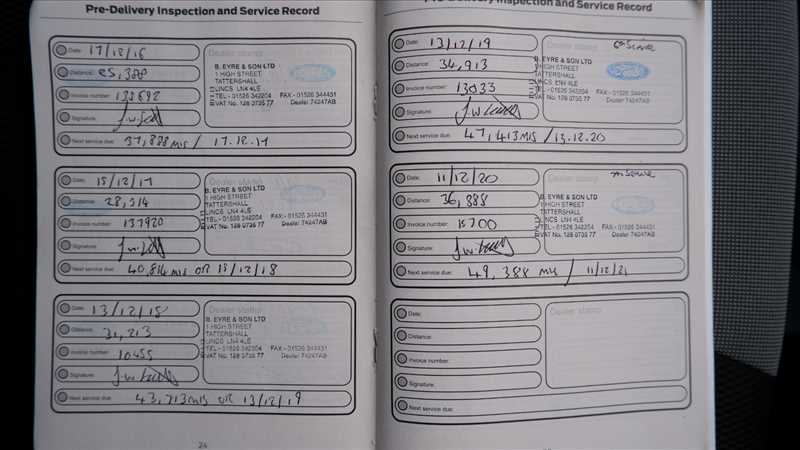 Pre-Delivery Inspection and Service Record
Date: 17/12/16
Distance: 25,388
Invoice number: 133692
Signature:
Next service due: 37,888 MLS / 17.12.17
Dealer stamp
B. EYRE & SON LTD
1 HIGH STREET
TATTERSHALL
LINCS LN4 4LE
TEL - 01526 342204 FAX - 01526 344431
VAT No. 128 0735 77 Dealer 74247AB
Date: 15/12/17
Distance: 28,314
Invoice number: 137920
Signature:
Next service due: 40,814 MLS OR 15/12/18
Dealer stamp
B. EYRE & SON LTD
1 HIGH STREET
TATTERSHALL
LINCS LN4 4LE
TEL - 01526 342204 FAX - 01526 344431
VAT No. 128 0735 77 Dealer 74247AB
Date: 13/12/18
Distance: 31,213
Invoice number: 10455
Signature:
Next service due: 43,713 MLS OR 13/12/19
Dealer stamp
B. EYRE & SON LTD
1 HIGH STREET
TATTERSHALL
LINCS LN4 4LE
TEL - 01526 342204 FAX - 01526 344431
VAT No. 128 0735 77 Dealer 74247AB
24
Pre-Delivery Inspection and Service Record
Date: 13/12/19
Distance: 34,913
Invoice number: 13033
Signature:
Next service due: 47,413 MLS / 13.12.20
Dealer stamp
Service
B. EYRE & SON LTD
1 HIGH STREET
TATTERSHALL
LINCS LN4 4LE
TEL - 01526 342204 FAX - 01526 344431
VAT No. 128 0735 77 Dealer 74247AB
Date: 11/12/20
Distance: 36,888
Invoice number: 15700
Signature:
Next service due: 49,388 MLS / 11/12/21
Dealer stamp
Service
B. EYRE & SON LTD
1 HIGH STREET
TATTERSHALL
LINCS LN4 4LE
TEL - 01526 342204 FAX - 01526 344431
VAT No. 128 0735 77 Dealer 74247AB
Date:
Distance:
Invoice number:
Signature:
Next service due:
Dealer stamp